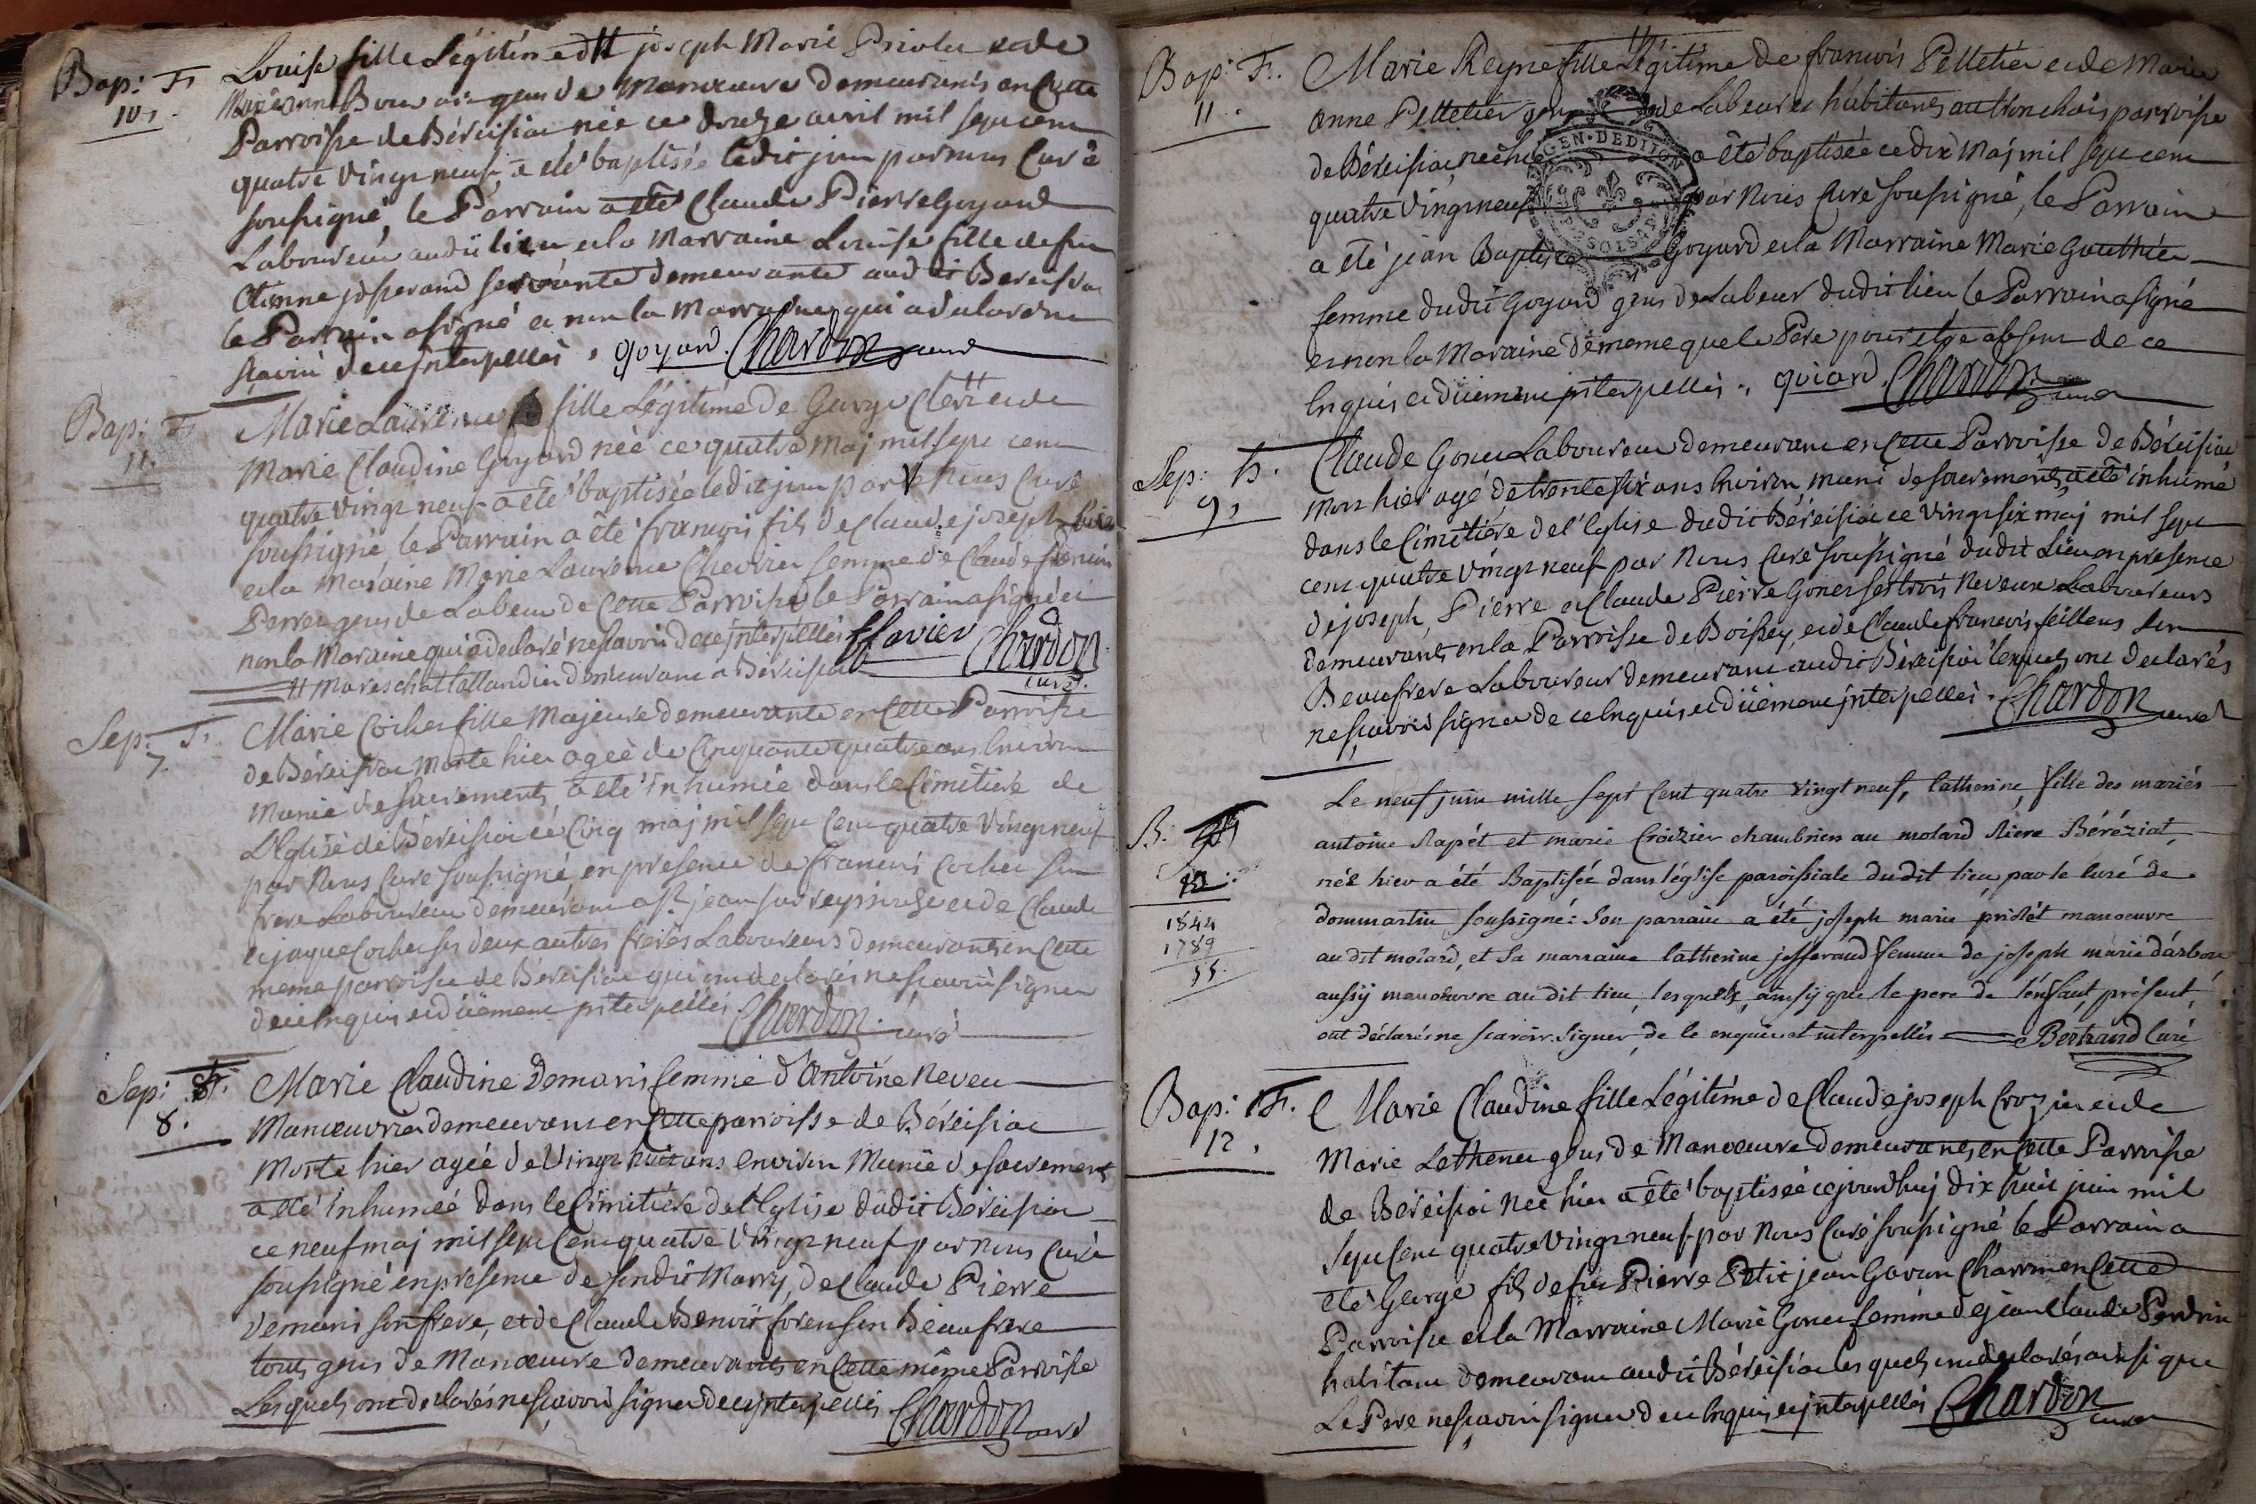 Bap: F.
10.
Louise fille Légitime dtt joseph Marie Priolet et de
Marie anne gens de Manœuvre demeurants en Cette
Parroisse de Béreisiac née ce douze avril mil sept cent
quatre vingt neuf a été baptisée ledit jour par nous Curé
soussigné, le Parrain a été Claude Pierre Goyard
Laboureur audit lieu et la Marraine Louise fille de feu
Etienne josserand servante demeurante audit Bereisia
le Parrain a signé et non la Marraine qui a déclaré ne
sçavoir de ce interpellés. goyard. Chardon curé
Bap: F.
11.
Marie Laurence fille Légitime de George Clerc et de
Marie Claudine Goyard née ce quatre Maj mil sept cent
quatre vingt neuf a été baptisée ledit jour par Nous Curé
soussigné, le Parrain a été francois fils de Claude joseph
et la Maraine Marie Laurence Chevrier femme de Claude
Perret gens de Labeur de Cette Parroisse le Parrain a signé et
non la Maraine qui a déclaré ne sçavoir de ce interpellés Chardon
tt Mareschal taillandier demeurant a Béreisia curé.
Sep: F.
7.
Marie Cocher fille Majeure demeurante en Cette Parroisse
de Béreisia Morte hier agée de Cinquante quatre ans Environ
Munie de sacrements, a été inhumée dans le Cimetiere de
L'Eglise de Béreisia ce Cinq maj mil sept Cent quatre vingt neuf
par Nous Curé soussigné en presence de francois Cocher son
frere Laboureur demeurant a St jean sur reyssouze et de Claude
et jaque Cocher ses deux autres freres Laboureurs demeurants en Cette
meme parroisse de Béreisia qui ont declarés ne sçavoir signer
de ce Enquis et düement interpellés Chardon curé
Sep: F.
8.
Marie Claudine Demaris femme d'Antoine Neveu
Manœuvre demeurant en Cette parroisse de Béreisia
Morte hier agée de Vingt huit ans environ Munie de sacrement
a été inhumée dans le Cimetiere de l'Eglise dudit Béreisia
ce neuf maj mil sept Cent quatre Vingt neuf par nous Curé
soussigné en presence de sondit Marry, de Claude Pierre
Demaris son frere, et de Claude Benoit son Beaufrere
touts gens de Manœuvre demeurants en Cette même Parroisse
Lesquels ont declarés ne sçavoir signer de ce interpellés Chardon curé
Bap: F.
11.
Marie Reyne fille Légitime de francois Pelletier et de Marie
anne Pelletier gens de Labeur et habitants au tronchois parroisse
de Béreisia, née hier a été baptisée ce dix Maj mil sept cent
quatre vingt neuf par Nous Curé soussigné, le Parrain
a été jean Baptiste Goyard et la Marraine Marie Gauthier
femme dudit Goyard gens de Labeur dudit lieu le Parrain a signé
et non la Maraine de meme que le Pere pour etre absent de ce
Enquis et düement interpellés. goiard. Chardon curé
Sep: h.
9.
Claude Gonet Laboureur demeurant en Cette Parroisse de Béreisia
Mort hier agé de trente six ans Environ, muni de sacrements, a été inhumé
dans le Cimetiére de l'Eglise dudit Béreisia ce vingt six maj mil sept
cent quatre vingt neuf par Nous Curé soussigné dudit Lieu en presence
de joseph, Pierre et Claude Pierre Gonet ses trois Neveux Laboureurs
demeurants en la Parroisse de Boissey, et de Claude francois feillens son
Beaufrere Laboureur demeurant audit Béreisia lesquels ont declarés
ne sçavoir signer de ce Enquis et düement interpellés. Chardon curé
B. F
12
1844
1789
55.
Le neuf juin mille sept Cent quatre vingt neuf, Catherine, fille des mariés
antoine Rapét et marie Croizier chambriers au molard Riere Béréziat,
née hier a été Baptisée dans léglise paroissiale du dit lieu, par le curé de
dommartin soussigné: Son parrain a été joseph marie priolét manoeuvre
au dit molard, et Sa marraine Catherine josserand femme de joseph marie d'arbon
aussij manoeuvre au dit lieu, lesquels, ainsij que le pere de l'énfant, présent,
ont déclarés ne scavoir signer, de le enquis et interpellés Bertrand Curé
Bap: F.
12.
Marie Claudine fille Légitime de Claude joseph Crozier et de
Marie Lethenet gens de Manœuvre demeurants en Cette Parroisse
de Béreisia Née hier a été baptisée cejourdhuj dix huit juin mil
sept Cent quatre vingt neuf par Nous Curé soussigné le Parrain a
été George fils de feu Pierre Petit jean en Cette
Parroisse et la Marraine Marie Gonet femme de jean Claude Perdrix
habitant demeurant audit Béreisia lesquels ont declarés ainsi que
Le Pere ne sçavoir signer de ce Enquis et interpellés Chardon curé